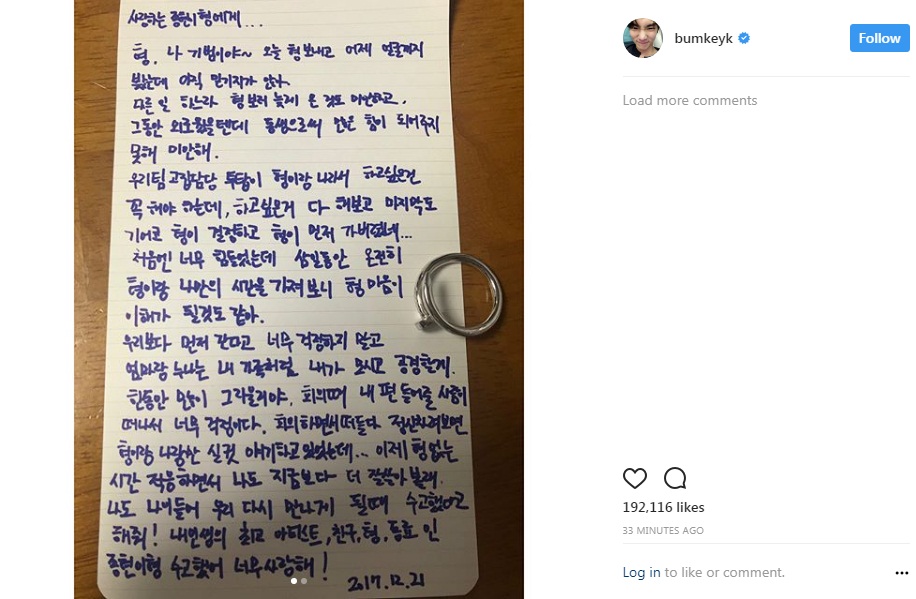 사랑하는 종현이형에게...
형. 나 기범이야~ 오늘 형보내고 어제 얼굴까지
봤는데 아직 믿기지가 않아
다른 일 하느라 형보러 늦게 온 것도 미안하고.
그동안 외로웠을텐데 동생으로써 많은 힘이 되어주지
못해 미안해.
우리팀 고집담당 투탑이 형이랑 나라서 하고싶은건
꼭 해야 하는데, 하고싶은거 다 해보고 마지막도
기어코 형이 결정하고 형이 먼저 가버렸네...
처음엔 너무 힘들었는데 삼일동안 온전히
형이랑 나만의 시간을 가져보니 형 마음이
이해가 될것도 같아.
우리보다 먼저 간다고 너무 걱정하지 말고
엄마랑 누나는 내 가족처럼 내가 모시고 공경할게.
한동안 많이 그리울거야. 회의때 내 편 들어줄 사람이
떠나서 너무 걱정이다. 회의하면서 떠들다 정신차려보면
형이랑 나랑만 실컷 얘기하고 있었는데... 이제 형 없는
시간 적응하면서 나도 지금보다 더 잘살아 볼래.
나도 나이들어 우리 다시 만나게 될때 수고했다고
해줘! 내인생의 최고 아티스트, 친구, 형, 동료 인
종현이형 수고했어 너무 사랑해!
2017.12.21
bumkeyk
Follow
Load more comments
192,116 likes
33 MINUTES AGO
Log in to like or comment.